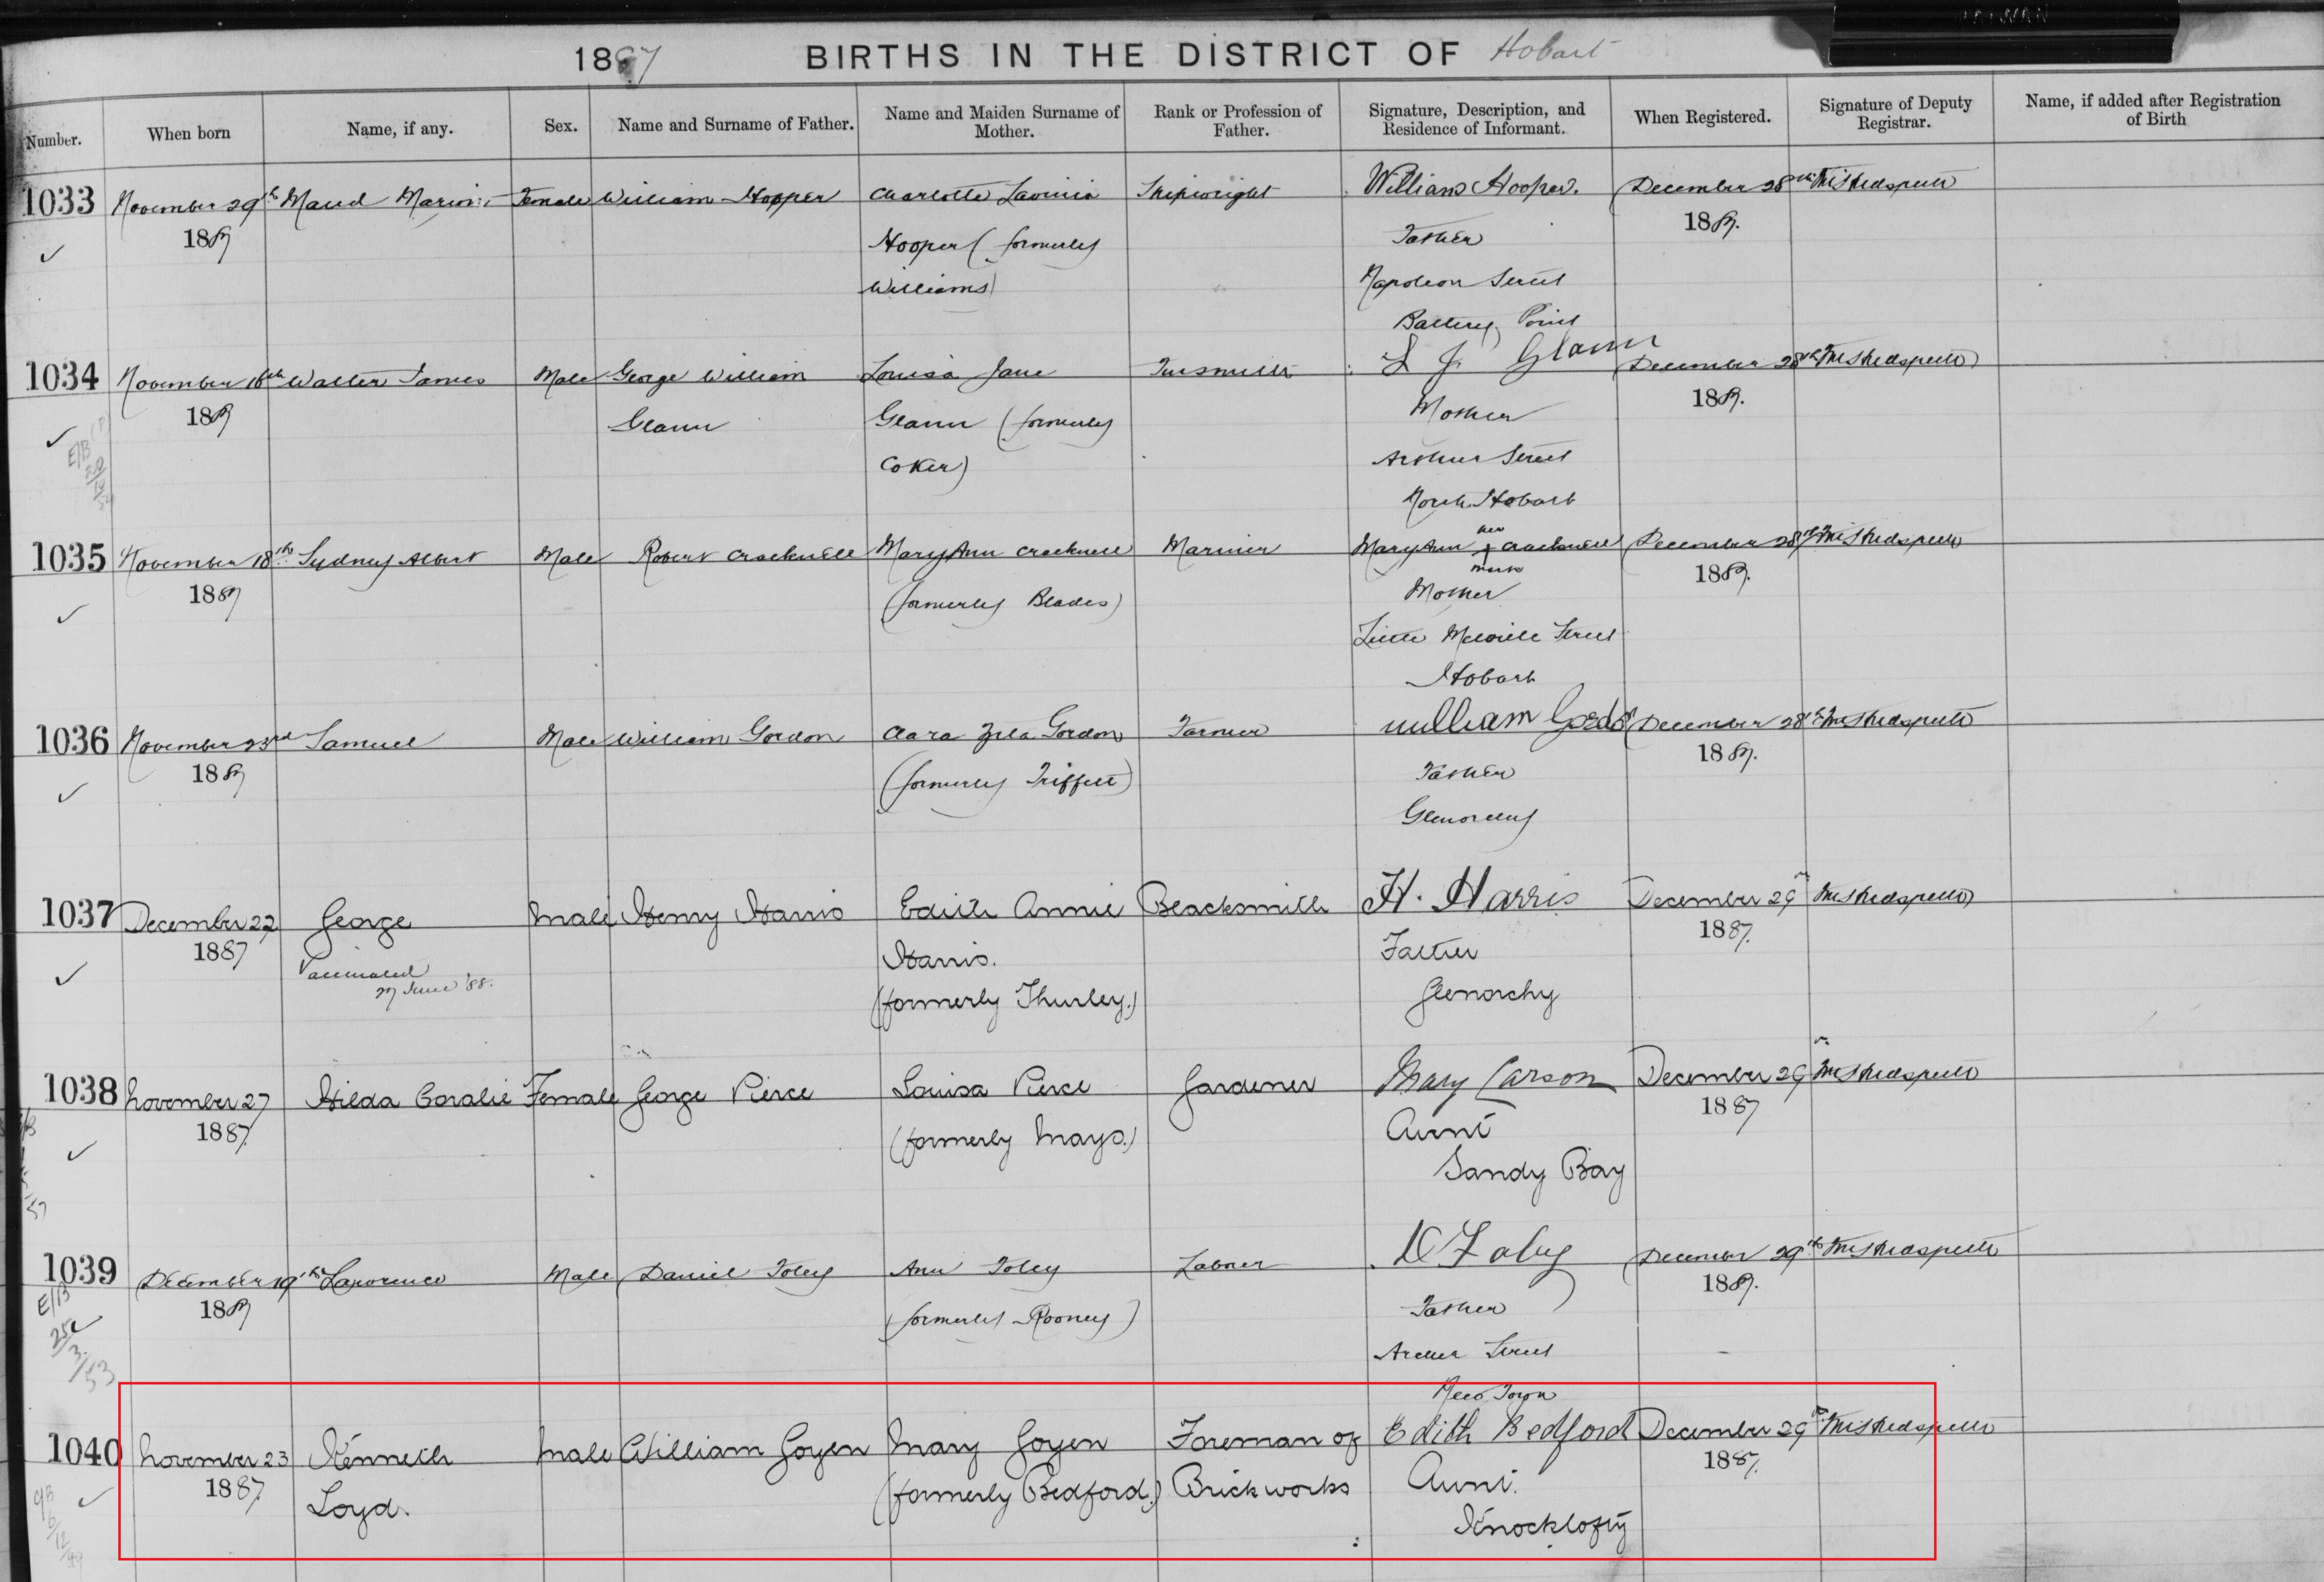 1887 BIRTHS IN THE DISTRICT OF Hobart
Number. When born Name, if any. Sex. Name and Surname of Father. Name and Maiden Surname of Mother. Rank or Profession of Father. Signature, Description, and Residence of Informant. When Registered. Signature of Deputy Registrar. Name, if added after Registration of Birth
1033 November 29th Maud Female William Hooper Charlotte Lavinia Shipwright William Hooper. December 28th
1887 Hooper (formerly Father 1887.
Williams) Napoleon Street
Battery Point
1034 November 16th Walter James Male George William Louisa Jane Tinsmith L J Glann December 28th
1887 Glann Glann (formerly Mother 1887.
Coker) Arthur Street
North Hobart
1035 November 18th Sydney Albert Male Robert Cracknell Mary Ann Cracknell Mariner Mary Ann her + mark Cracknell December 28th
1887 (formerly Blades) Mother 1887.
Little Melville Street
Hobart
1036 November 23rd Samuel Male William Gordon Clara Zilla Gordon Farmer William Gordon December 28th
1887 (formerly Triffett) Father 1887.
Glenorchy
1037 December 22 George Male Henry Harris Edith Annie Blacksmith H. Harris December 29th
1887 Vaccinated Harris. Father 1887.
27 June '88. (formerly Thurley.) Glenorchy
1038 November 27 Hilda Coralie Female George Pierce Louisa Pierce Gardener Mary Carson December 29th
1887. (formerly Mays.) Aunt 1887
Sandy Bay
1039 December 19th Lawrence Male Daniel Foley Ann Foley Labrer D Foley December 29th
E/B 1887 (formerly Rooney) Father 1887.
25/3/53 Archer Street
New Town
1040 November 23 Kenneth Male William Goyen Mary Goyen Foreman of Edith Bedford December 29th
1887. Loyd. (formerly Bedford.) Brickworks Aunt. 1887.
Knocklofty